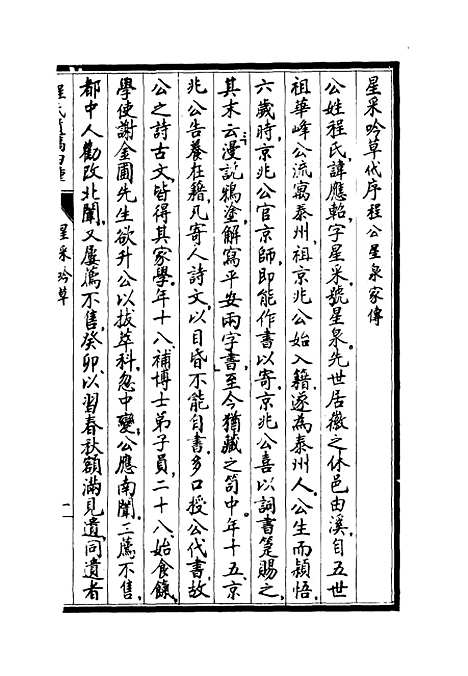 星采吟草代序程公星泉家傳
公姓程氏諱應韜字星采號星泉先世居徽之休邑由溪自五世
祖華峰公流寓泰州祖京兆公始入籍遂為泰州人公生而穎悟
六歲時京兆公官京師即能作書以寄京兆公喜以詞書箑賜之
其末云漫説鴉塗解寫平安兩字書至今猶藏之笥中年十五京
兆公告養在籍凡寄人詩文以目昏不能自書多口授公代書故
公之詩古文皆得其家學年十八補博士弟子員二十八始食餼
學使謝金圃先生欲升公以拔萃科忽中變公應南闈三薦不售
都中人勸改北闈又屢薦不售癸卯以習春秋額滿見遺同遺者
程氏遺稿四種
星采吟草
一